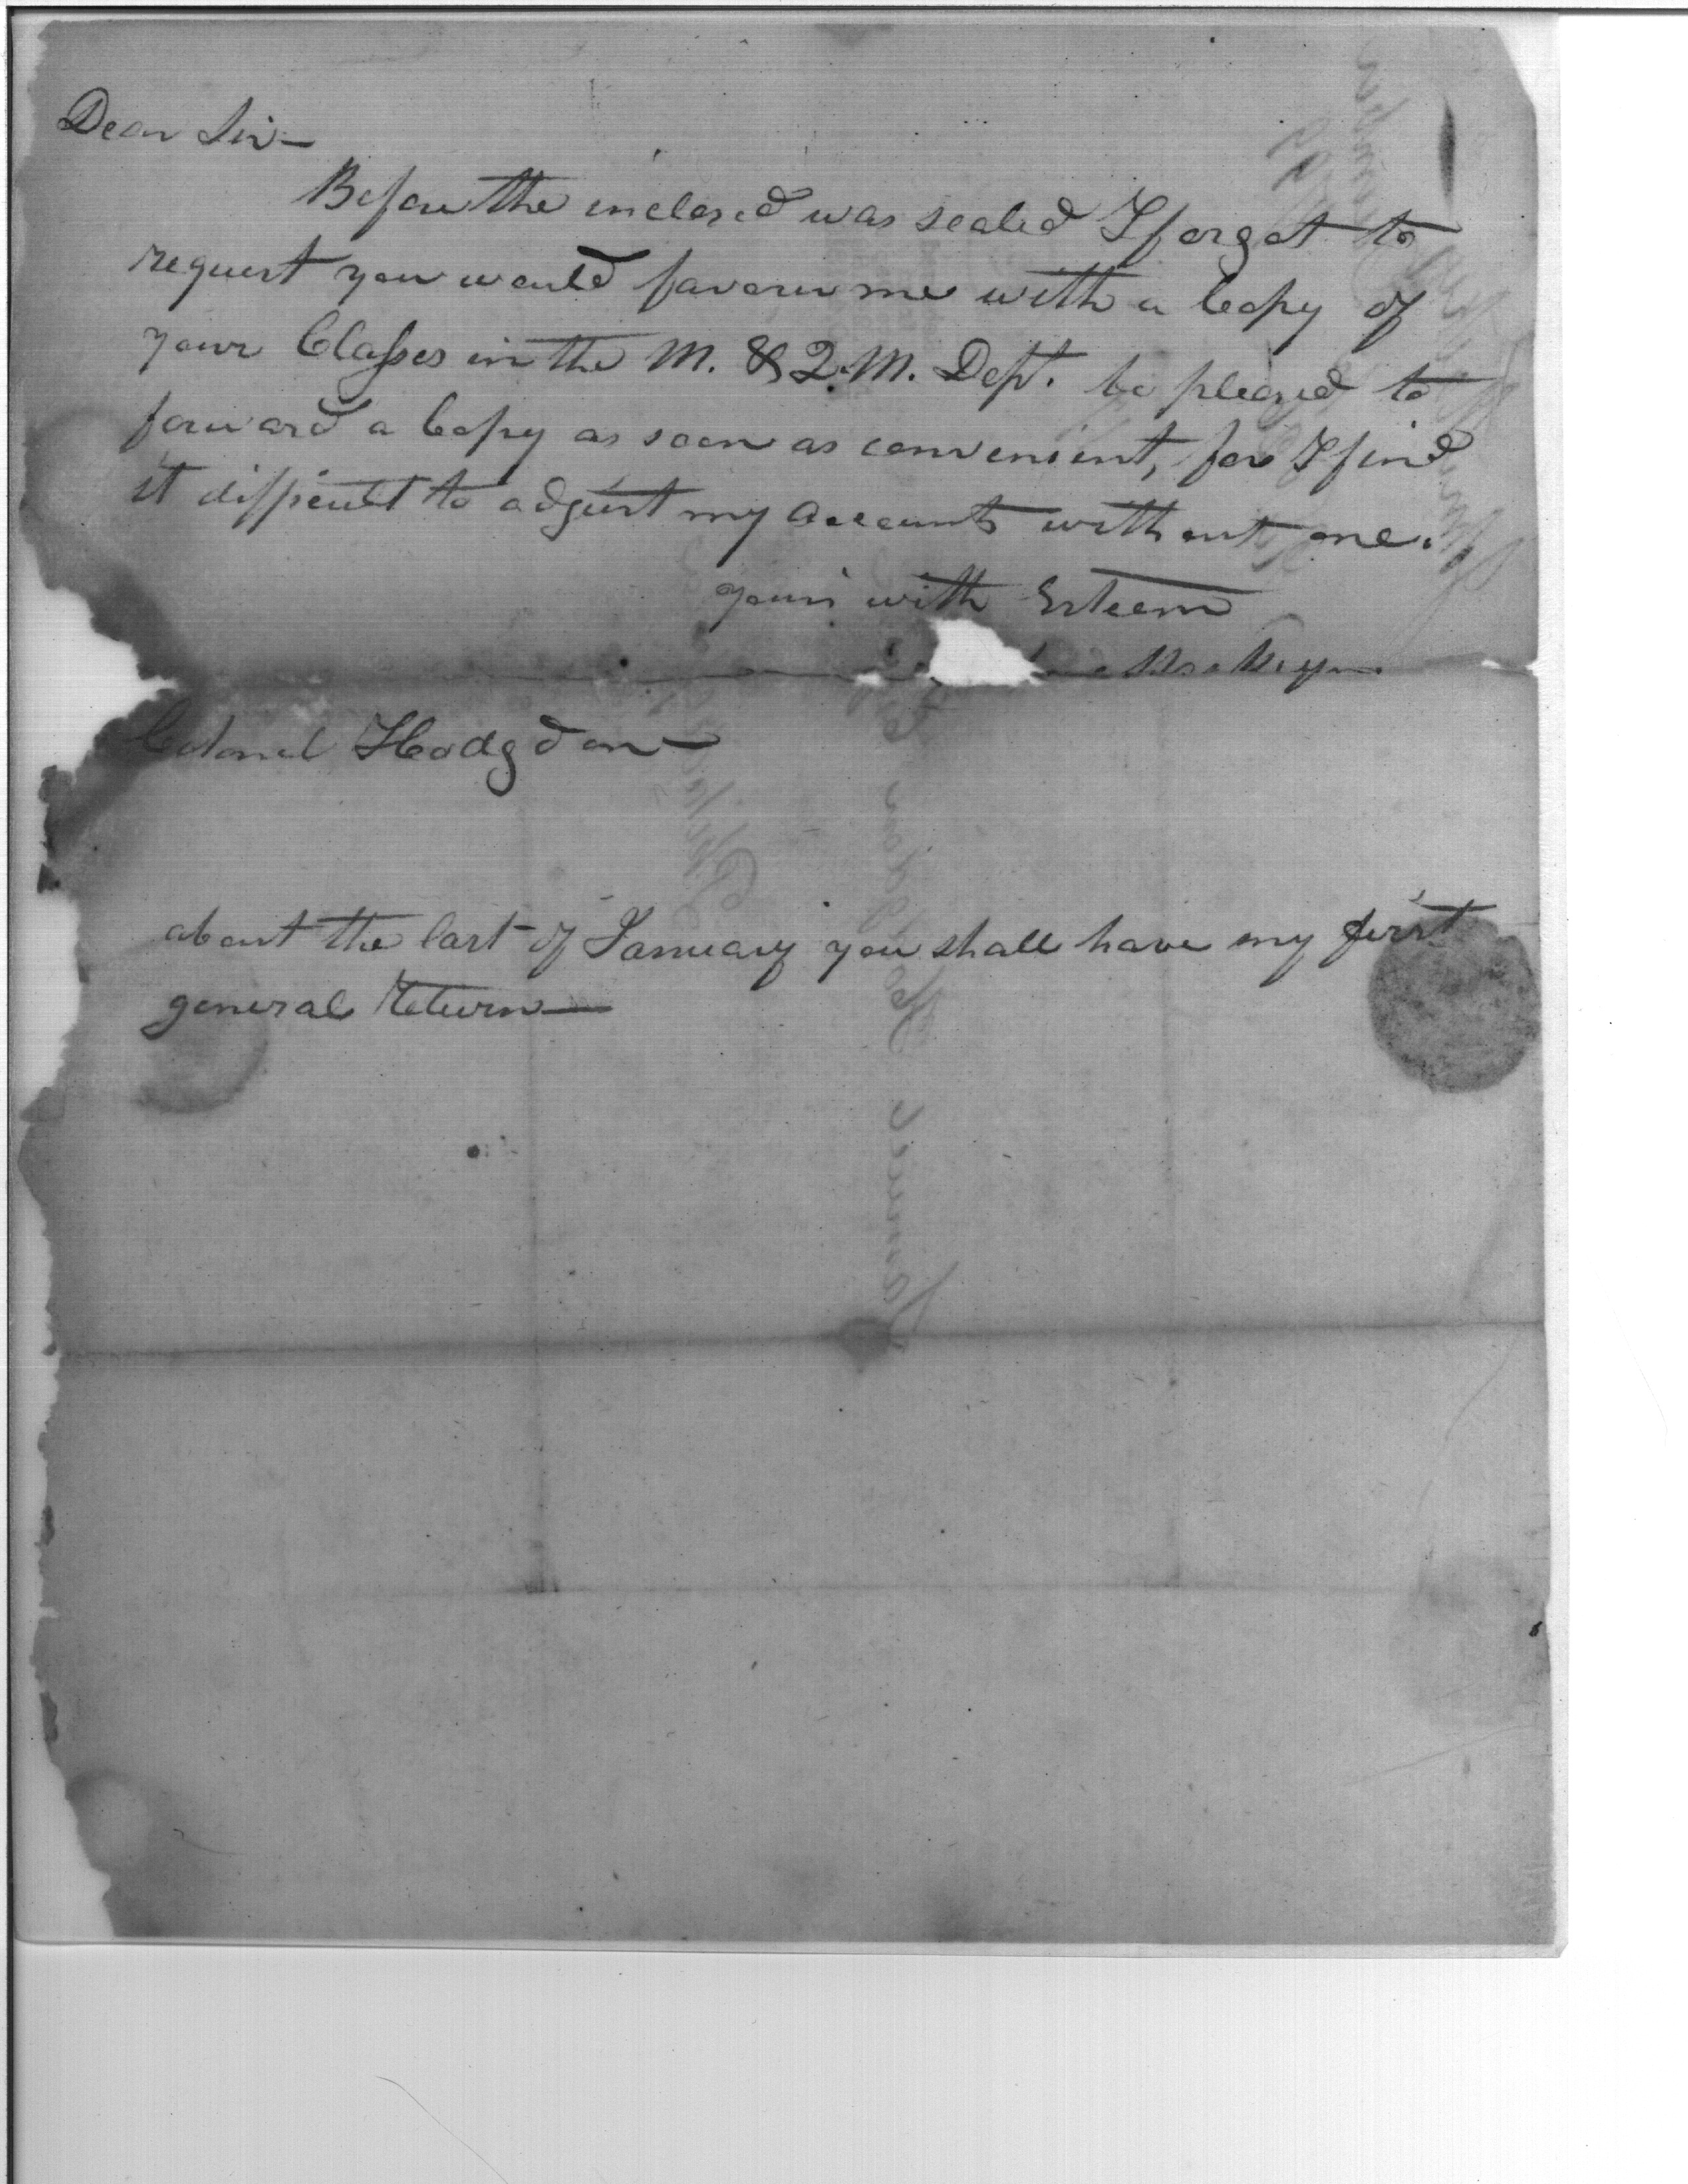 Dear Sir—
Before the inclosed was sealed I forgot to
request you would favour me with a Copy of
your Classes in the M. & Q.M. Dept. be pleased to
forward a Copy as soon as convenient, for I find
it difficult to adjust my Accounts without one.
yours with Esteem
Colonel Hodgdon—
about the last of January you shall have my first
general Return—
Samuel Hodgdon